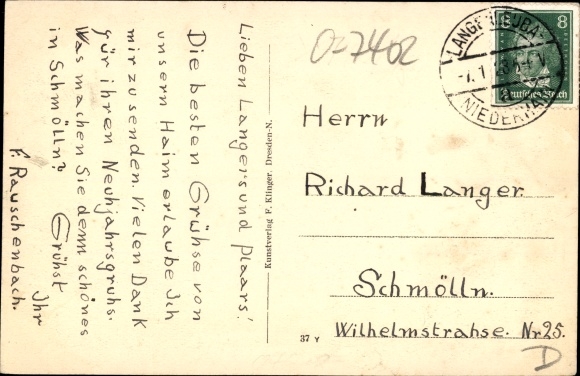 Lieben Langers und Plaars!
Die besten Grühse von
unsern Haim erlaube Ich
mir zu senden. Vielen Dank
für ihren Neuhjahrsgruhs.
Was machen Sie denn schönes
in Schmölln? Grühst
Ihr
F. Rauschenbach.
Kunstverlag F. Klinger, Dresden-N.
0-7402
8
Deutsches Reich
Herrn
Richard Langer.
Schmölln.
Wilhelmstrahse. Nr 25.
37 Y
D